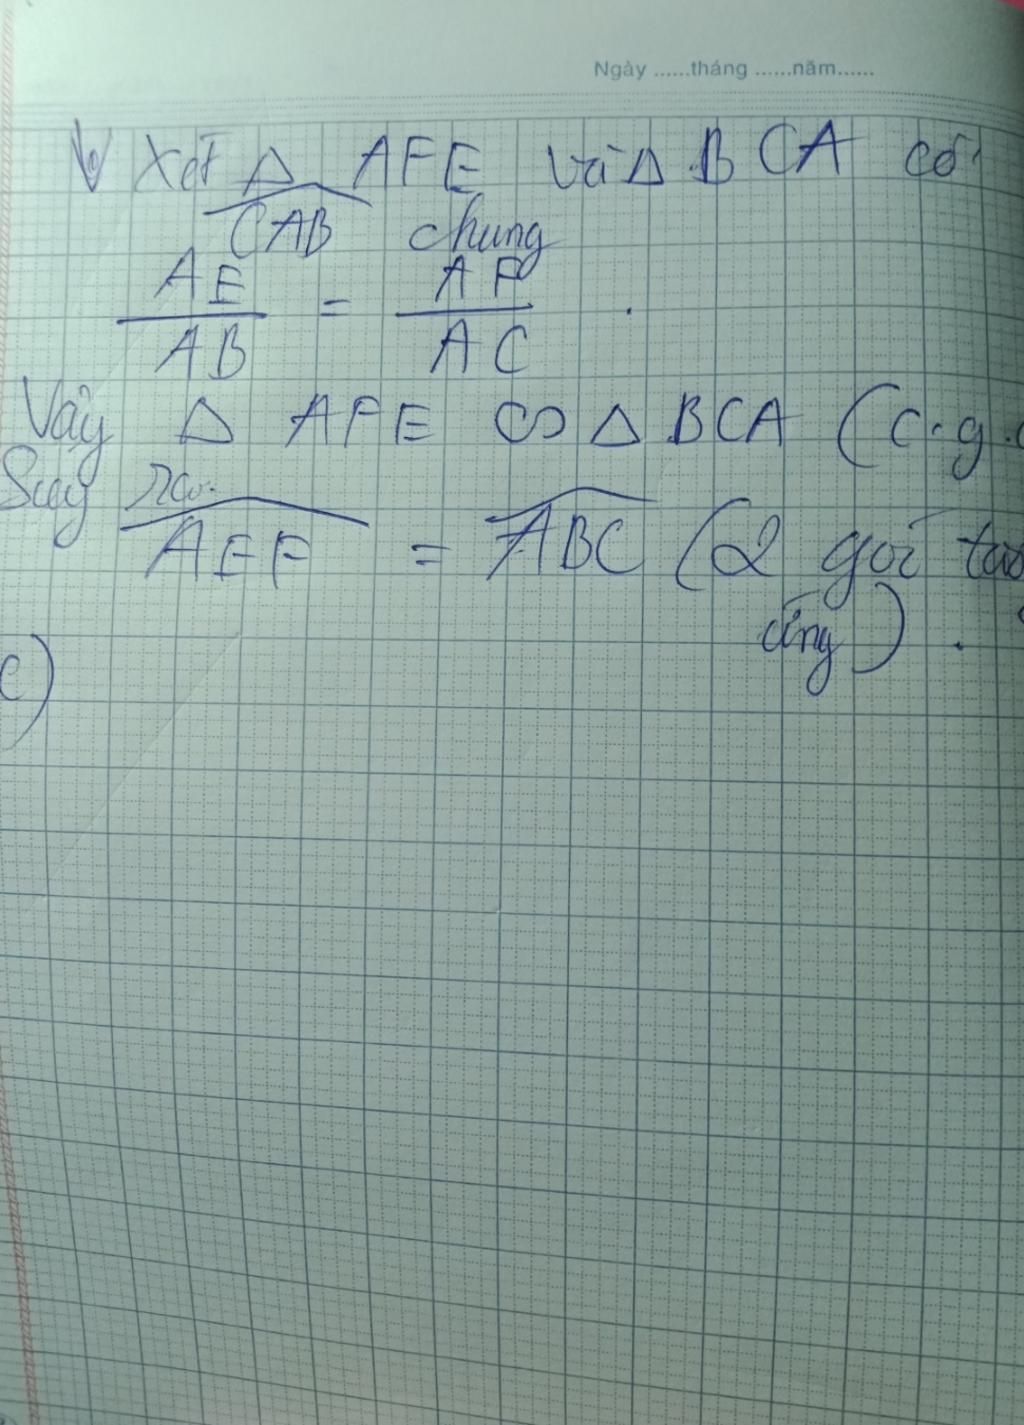 Ngày ......tháng ......năm......
Xét Δ AFE và Δ BCA có
CAB chung
AE/AB = AF/AC .
Vậy Δ AFE ∽ Δ BCA (c.g.c
Suy ra
AEF = ABC (2 góc
ứng) .
c)